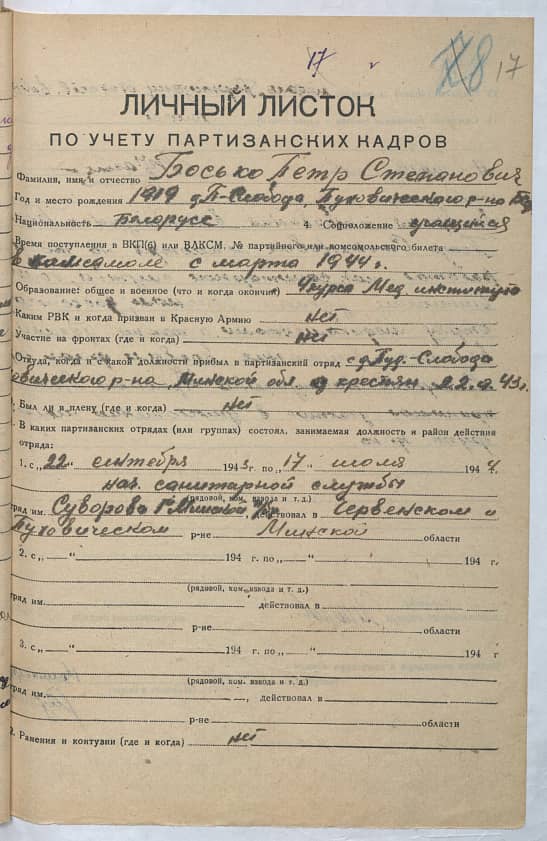 17 17
ЛИЧНЫЙ ЛИСТОК
ПО УЧЕТУ ПАРТИЗАНСКИХ КАДРОВ
Фамилия, имя и отчество Босько Петр Степанович
Год и место рождения 1919 д. П-Слобода Пуховического р-на
Национальность Белорусс 4. Соцположение учащийся
Время поступления в ВКП(б) или ВЛКСМ, № партийного или комсомольского билета
в комсамоле с марта 1944 г.
Образование: общее и военное (что и когда окончил) 4 курса Мед института
Каким РВК и когда призван в Красную Армию нет
Участие на фронтах (где и когда) нет
Откуда, когда и с какой должности прибыл в партизанский отряд с д. Пуд.-Слобода
овического р-на, Минской обл. из крестьян 22.9.43 г.
Был ли в плену (где и когда) нет
В каких партизанских отрядах (или группах) состоял, занимаемая должность и район действия
отряда:
1. с „22“ сентября 1943 г. по „17“ июля 1944
нач. санитарной службы
(рядовой, ком. взвода и т. д.)
ряд им. Суворова 1 Минской бр., действовал в Червенском и
Пуховическом р-не Минской области
2. с „ “ 194 г. по „ “ 194 г.
(рядовой, ком. взвода и т. д.)
тряд им. действовал в
р-не области
3. с „ “ 194 г. по „ “ 194 г
(рядовой, ком. взвода и т. д.)
тряд им. , действовал в
р-не области
2. Ранения и контузии (где и когда) нет